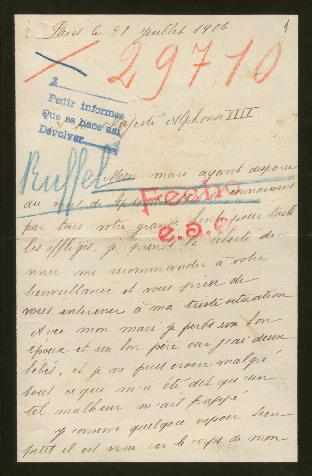 Paris le 21 juillet 1906
1
29710
Pedir informes
Que se hace así
Devolver
Majesté Alphonse XIII
Ruffel
Mon mari ayant disparu
au mois de et connaissant
Fecho
e.s.c
par tous votre grande bonté pour tous
les affligés, je prends la liberté de
venir me recommander à votre
bienveillance et vous prier de
vous intéresser à ma triste situation
Avec mon mari je perds un bon
époux et un bon père car j'ai deux
bébés, et je ne puis croire malgré
tout ce qui m'a été dit qu'un
tel malheur m'ait frappé
Je conserve quelque espoir bien
petit il est vrai car le corps de mon